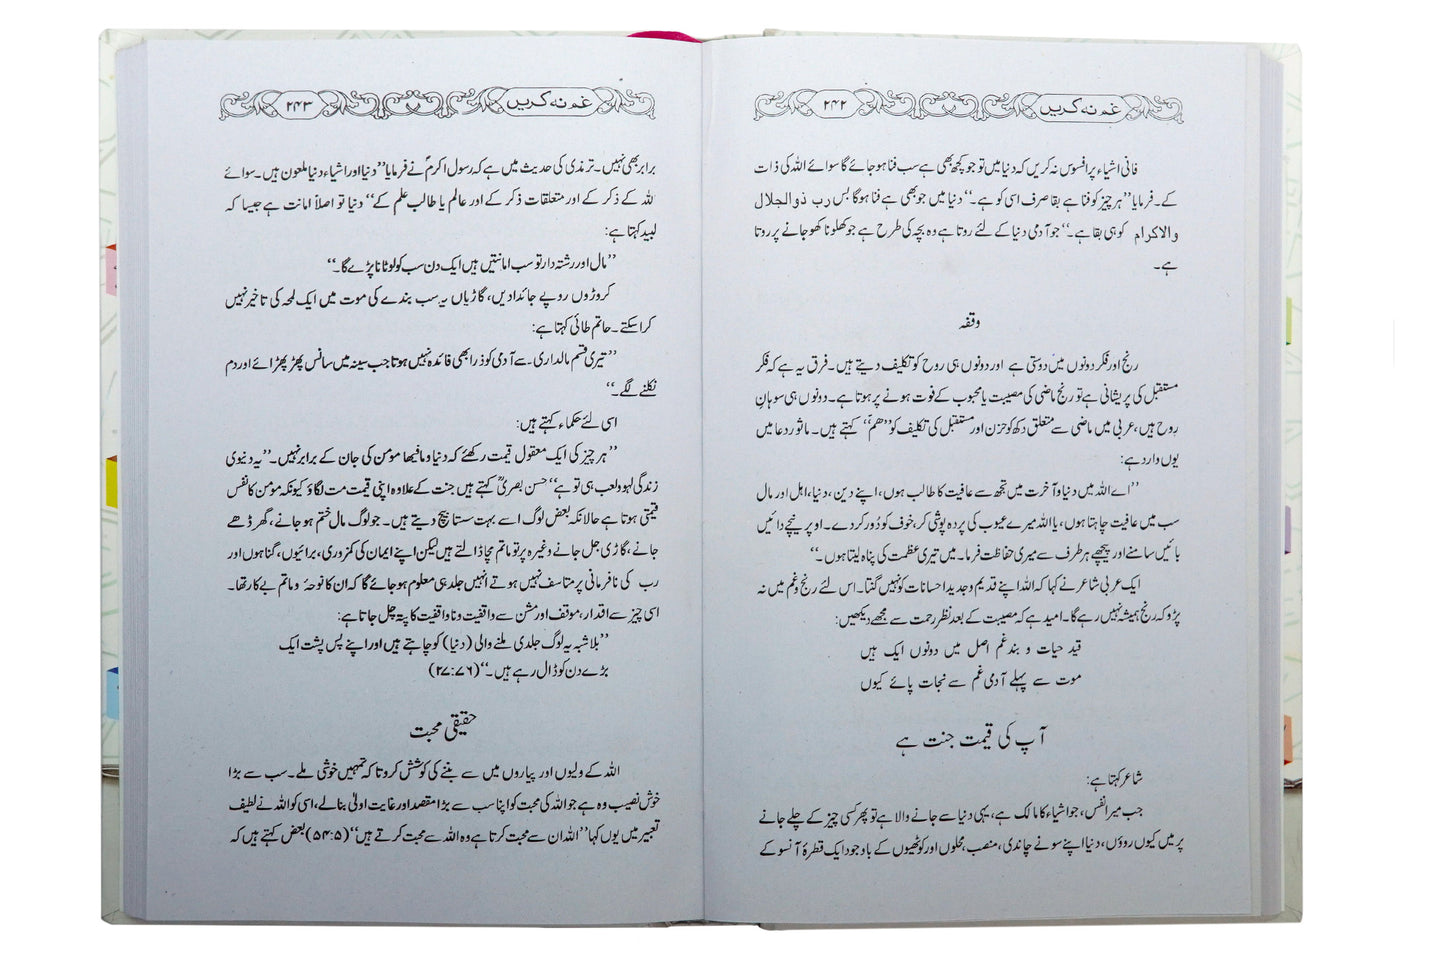 غم نہ کریں ۲۴۲
فانی اشیاء پر افسوس نہ کریں کہ دنیا میں تو جو کچھ بھی ہے سب فنا ہو جائے گا سوائے اللہ کی ذات
کے۔ فرمایا ’’ہر چیز کو فنا ہے بقا صرف اسی کو ہے۔‘‘ دنیا میں جو بھی ہے فنا ہو گا بس رب ذوالجلال
والاکرام کو ہی بقا ہے۔‘‘ جو آدمی دنیا کے لئے روتا ہے وہ بچہ کی طرح ہے جو کھلونا کھو جانے پر روتا
ہے۔
وقفہ
رنج اور فکر دونوں میں دوستی ہے اور دونوں ہی روح کو تکلیف دیتے ہیں۔ فرق یہ ہے کہ فکر
مستقبل کی پریشانی ہے تو رنج ماضی کی مصیبت یا محبوب کے فوت ہونے پر ہوتا ہے۔ دونوں ہی سوہانِ
روح ہیں، عربی میں ماضی سے متعلق دکھ کو حزن اور مستقبل کی تکلیف کو ’’ھمّ‘‘ کہتے ہیں۔ ماثور دعا میں
یوں وارد ہے:
’’اے اللہ میں دنیا و آخرت میں تجھ سے عافیت کا طالب ہوں، اپنے دین، دنیا، اہل اور مال
سب میں عافیت چاہتا ہوں، یا اللہ میرے عیوب کی پردہ پوشی کر، خوف کو دُور کر دے۔ اوپر نیچے دائیں
بائیں سامنے اور پیچھے ہر طرف سے میری حفاظت فرما۔ میں تیری عظمت کی پناہ لیتا ہوں۔‘‘
ایک عربی شاعر نے کہا کہ اللہ اپنے قدیم و جدید احسانات کو نہیں گنتا۔ اس لئے رنج و غم میں نہ
پڑو کہ رنج ہمیشہ نہیں رہے گا۔ امید ہے کہ مصیبت کے بعد نظر رحمت سے مجھے دیکھیں:
قید حیات و بند غم اصل میں دونوں ایک ہیں
موت سے پہلے آدمی غم سے نجات پائے کیوں
آپ کی قیمت جنت ہے
شاعر کہتا ہے:
جب میرا نفس، جو اشیاء کا مالک ہے، یہی دنیا سے جانے والا ہے تو پھر کسی چیز کے چلے جانے
پر میں کیوں روؤں، دنیا اپنے سونے چاندی، منصب، محلوں اور کوٹھیوں کے باوجود ایک قطرۂ آنسو کے
غم نہ کریں ۲۴۳
برابر بھی نہیں۔ ترمذی کی حدیث میں ہے کہ رسول اکرمؐ نے فرمایا ’’دنیا اور اشیاء دنیا ملعون ہیں۔ سوائے
للہ کے ذکر کے اور متعلقات ذکر کے اور عالم یا طالب علم کے‘‘ دنیا تو اصلاً امانت ہے جیسا کہ
لبید کہتا ہے:
’’مال اور رشتہ دار تو سب امانتیں ہیں ایک دن سب کو لوٹانا پڑے گا۔‘‘
کروڑوں روپے جائدادیں، گاڑیاں یہ سب بندے کی موت میں ایک لمحہ کی تاخیر نہیں
کرا سکتے۔ حاتم طائی کہتا ہے:
’’تیری قسم مالداری۔ سے آدمی کو ذرا بھی فائدہ نہیں ہوتا جب سینہ میں سانس پھڑ پھڑائے اور دم
نکلنے لگے۔‘‘
اسی لئے حکماء کہتے ہیں:
’’ہر چیز کی ایک معقول قیمت رکھئے کہ دنیا و مافیہا مؤمن کی جان کے برابر نہیں۔‘‘ یہ دنیوی
زندگی لہو و لعب ہی تو ہے‘‘ حسن بصریؒ کہتے ہیں جنت کے علاوہ اپنی قیمت مت لگاؤ کیونکہ مؤمن کا نفس
قیمتی ہوتا ہے حالانکہ بعض لوگ اسے بہت سستا بیچ دیتے ہیں۔ جو لوگ مال ختم ہو جانے، گھر ڈھے
جانے، گاڑی جل جانے وغیرہ پر تو ماتم مچا ڈالتے ہیں لیکن اپنے ایمان کی کمزوری، برائیوں، گناہوں اور
رب کی نافرمانی پر متاسف نہیں ہوتے انہیں جلد ہی معلوم ہو جائے گا کہ ان کا نوحہ و ماتم بے کار تھا۔
اسی چیز سے اقدار، موقف اور مشن سے واقفیت و ناواقفیت کا پتہ چل جاتا ہے:
’’بلا شبہ یہ لوگ جلدی ملنے والی (دنیا) کو چاہتے ہیں اور اپنے پس پشت ایک
بڑے دن کو ڈال رہے ہیں۔‘‘ (۲۷:۷۶)
حقیقی محبت
اللہ کے ولیوں اور پیاروں میں سے بننے کی کوشش کرو تا کہ تمہیں خوشی ملے۔ سب سے بڑا
خوش نصیب وہ ہے جو اللہ کی محبت کو اپنا سب سے بڑا مقصد اور غایت اولیٰ بنا لے، اسی کو اللہ نے لطیف
تعبیر میں یوں کہا ’’اللہ ان سے محبت کرتا ہے وہ اللہ سے محبت کرتے ہیں‘‘ (۵۴:۵) بعض کہتے ہیں کہ